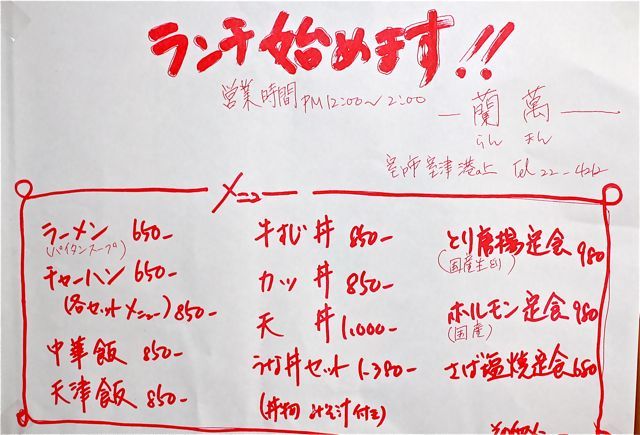 ランチ始めます!!
営業時間 PM12:00〜2:00
蘭 萬
らん まん
室津港の上 Tel 22-
メニュー
ラーメン 650-
(パイタンスープ)
チャーハン 650-
(各セットメニュー) 850-
中華飯 850-
天津飯 850-
牛すじ丼 850-
カツ丼 850-
天丼 1,000-
うな丼セット 1,380-
(丼物 みそ汁付き)
とり唐揚定食 980
(国産生鶏)
ホルモン定食 980
(国産)
さば塩焼定食 680